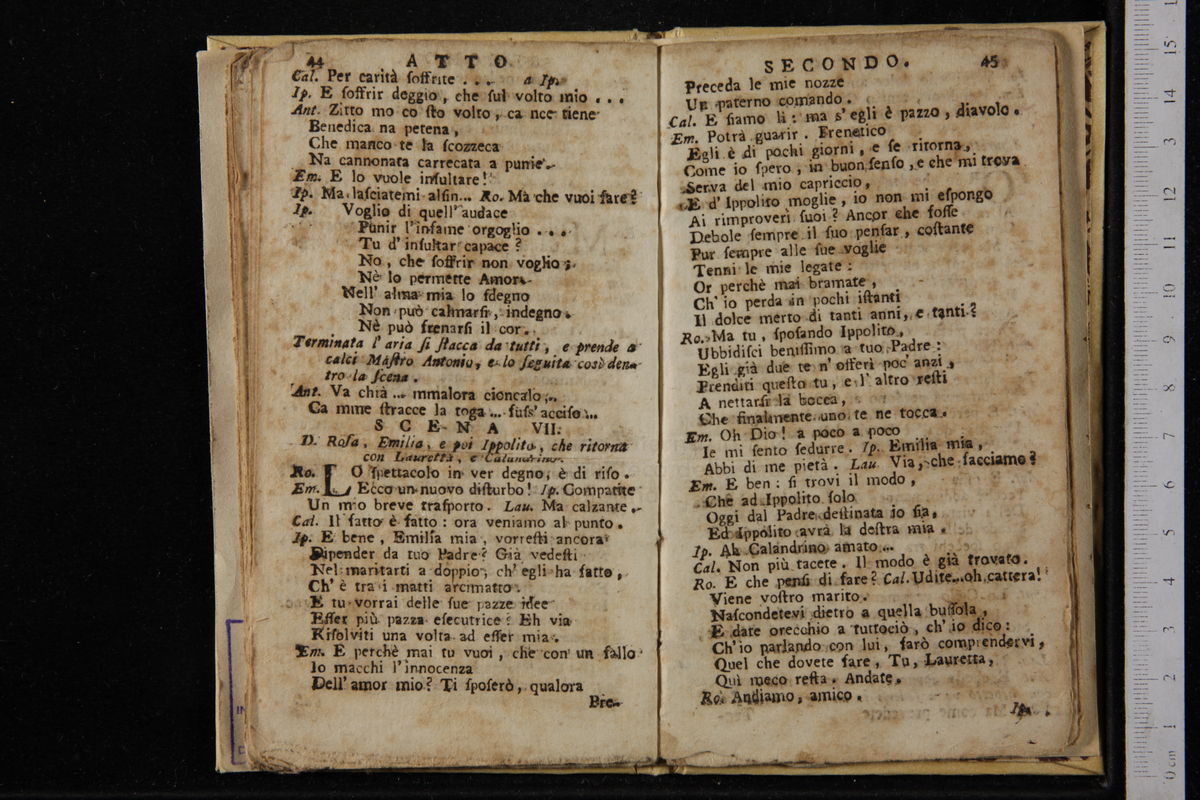 44 ATTO
Cal. Per carità ſoffrite . . . a Ip.
Ip. E ſoffrir deggio, che ſul volto mio . . .
Ant. Zitto mo co ſto volto, ca nce tiene
Benedica na petena,
Che manco te la ſcozzeca
Na cannonata carrecata a punie.
Em. E lo vuole inſultare!
Ip. Ma laſciatemi alfin... Ro. Ma che vuoi fare?
Ip. Voglio di quell' audace
Punir l'infame orgoglio . . .
Tu d' inſultar capace?
No, che ſoffrir non voglio;
Nè lo permette Amor.
Nell' alma mia lo ſdegno
Non può calmarſi, indegno.
Nè può frenarſi il cor.
Terminata l'aria ſi ſtacca da tutti, e prende a
calci Maſtro Antonio, e lo ſeguita così den-
tro la ſcena.
Ant. Va chià ... mmalora cioncalo;..
Ca mme ſtracce la toga ... fuſs' acciſo ...
SCENA VII.
D. Roſa, Emilia, e poi Ippolito, che ritorna
con Lauretta, e Calandrino.
Ro. LO ſpettacolo in ver degno, è di riſo.
Em. Ecco un nuovo diſturbo! Ip. Compatite
Un mio breve traſporto. Lau. Ma calzante.
Cal. Il fatto è fatto: ora veniamo al punto.
Ip. E bene, Emilia mia, vorreſti ancora
Dipender da tuo Padre? Già vedeſti
Nel maritarti a doppio, ch' egli ha fatto,
Ch' è tra i matti arcimatto.
E tu vorrai delle ſue pazze idee
Eſſer più pazza eſecutrice? Eh via
Riſolviti una volta ad eſſer mia.
Em. E perchè mai tu vuoi, che con un fallo
Io macchi l'innocenza
Dell' amor mio? Ti ſpoſerò, qualora
Pre-
SECONDO. 45
Preceda le mie nozze
Un paterno comando.
Cal. E ſiamo lì: ma s' egli è pazzo, diavolo.
Em. Potrà guarir. Frenetico
Egli è di pochi giorni, e ſe ritorna,
Come io ſpero, in buon ſenſo, e che mi trova
Serva del mio capriccio,
E d' Ippolito moglie, io non mi eſpongo
Ai rimproveri ſuoi? Ancor che foſſe
Debole ſempre il ſuo penſar, coſtante
Pur ſempre alle ſue voglie
Tenni le mie legate:
Or perchè mai bramate,
Ch' io perda in pochi iſtanti
Il dolce merto di tanti anni, e tanti?
Ro. Ma tu, ſpoſando Ippolito,
Ubbidiſci beniſſimo a tuo Padre:
Egli già due te n' offerì poc' anzi,
Prenditi queſto tu, e l' altro reſti
A nettarſi la bocca,
Che finalmente uno te ne tocca.
Em. Oh Dio! a poco a poco
Ie mi ſento ſedurre. Ip. Emilia mia,
Abbi di me pietà. Lau. Via, che facciamo?
Em. E ben: ſi trovi il modo,
Che ad Ippolito ſolo
Oggi dal Padre deſtinata io ſia,
Ed Ippolito avrà la deſtra mia.
Ip. Ah Calandrino amato...
Cal. Non più tacete. Il modo è già trovato.
Ro. E che penſi di fare? Cal. Udite...oh cattera!
Viene voſtro marito.
Naſcondetevi dietro a quella buſſola,
E date orecchio a tuttociò, ch' io dico:
Ch'io parlando con lui, farò comprendervi,
Quel che dovete fare, Tu, Lauretta,
Quì meco reſta. Andate.
Ro. Andiamo, amico.
Ip.